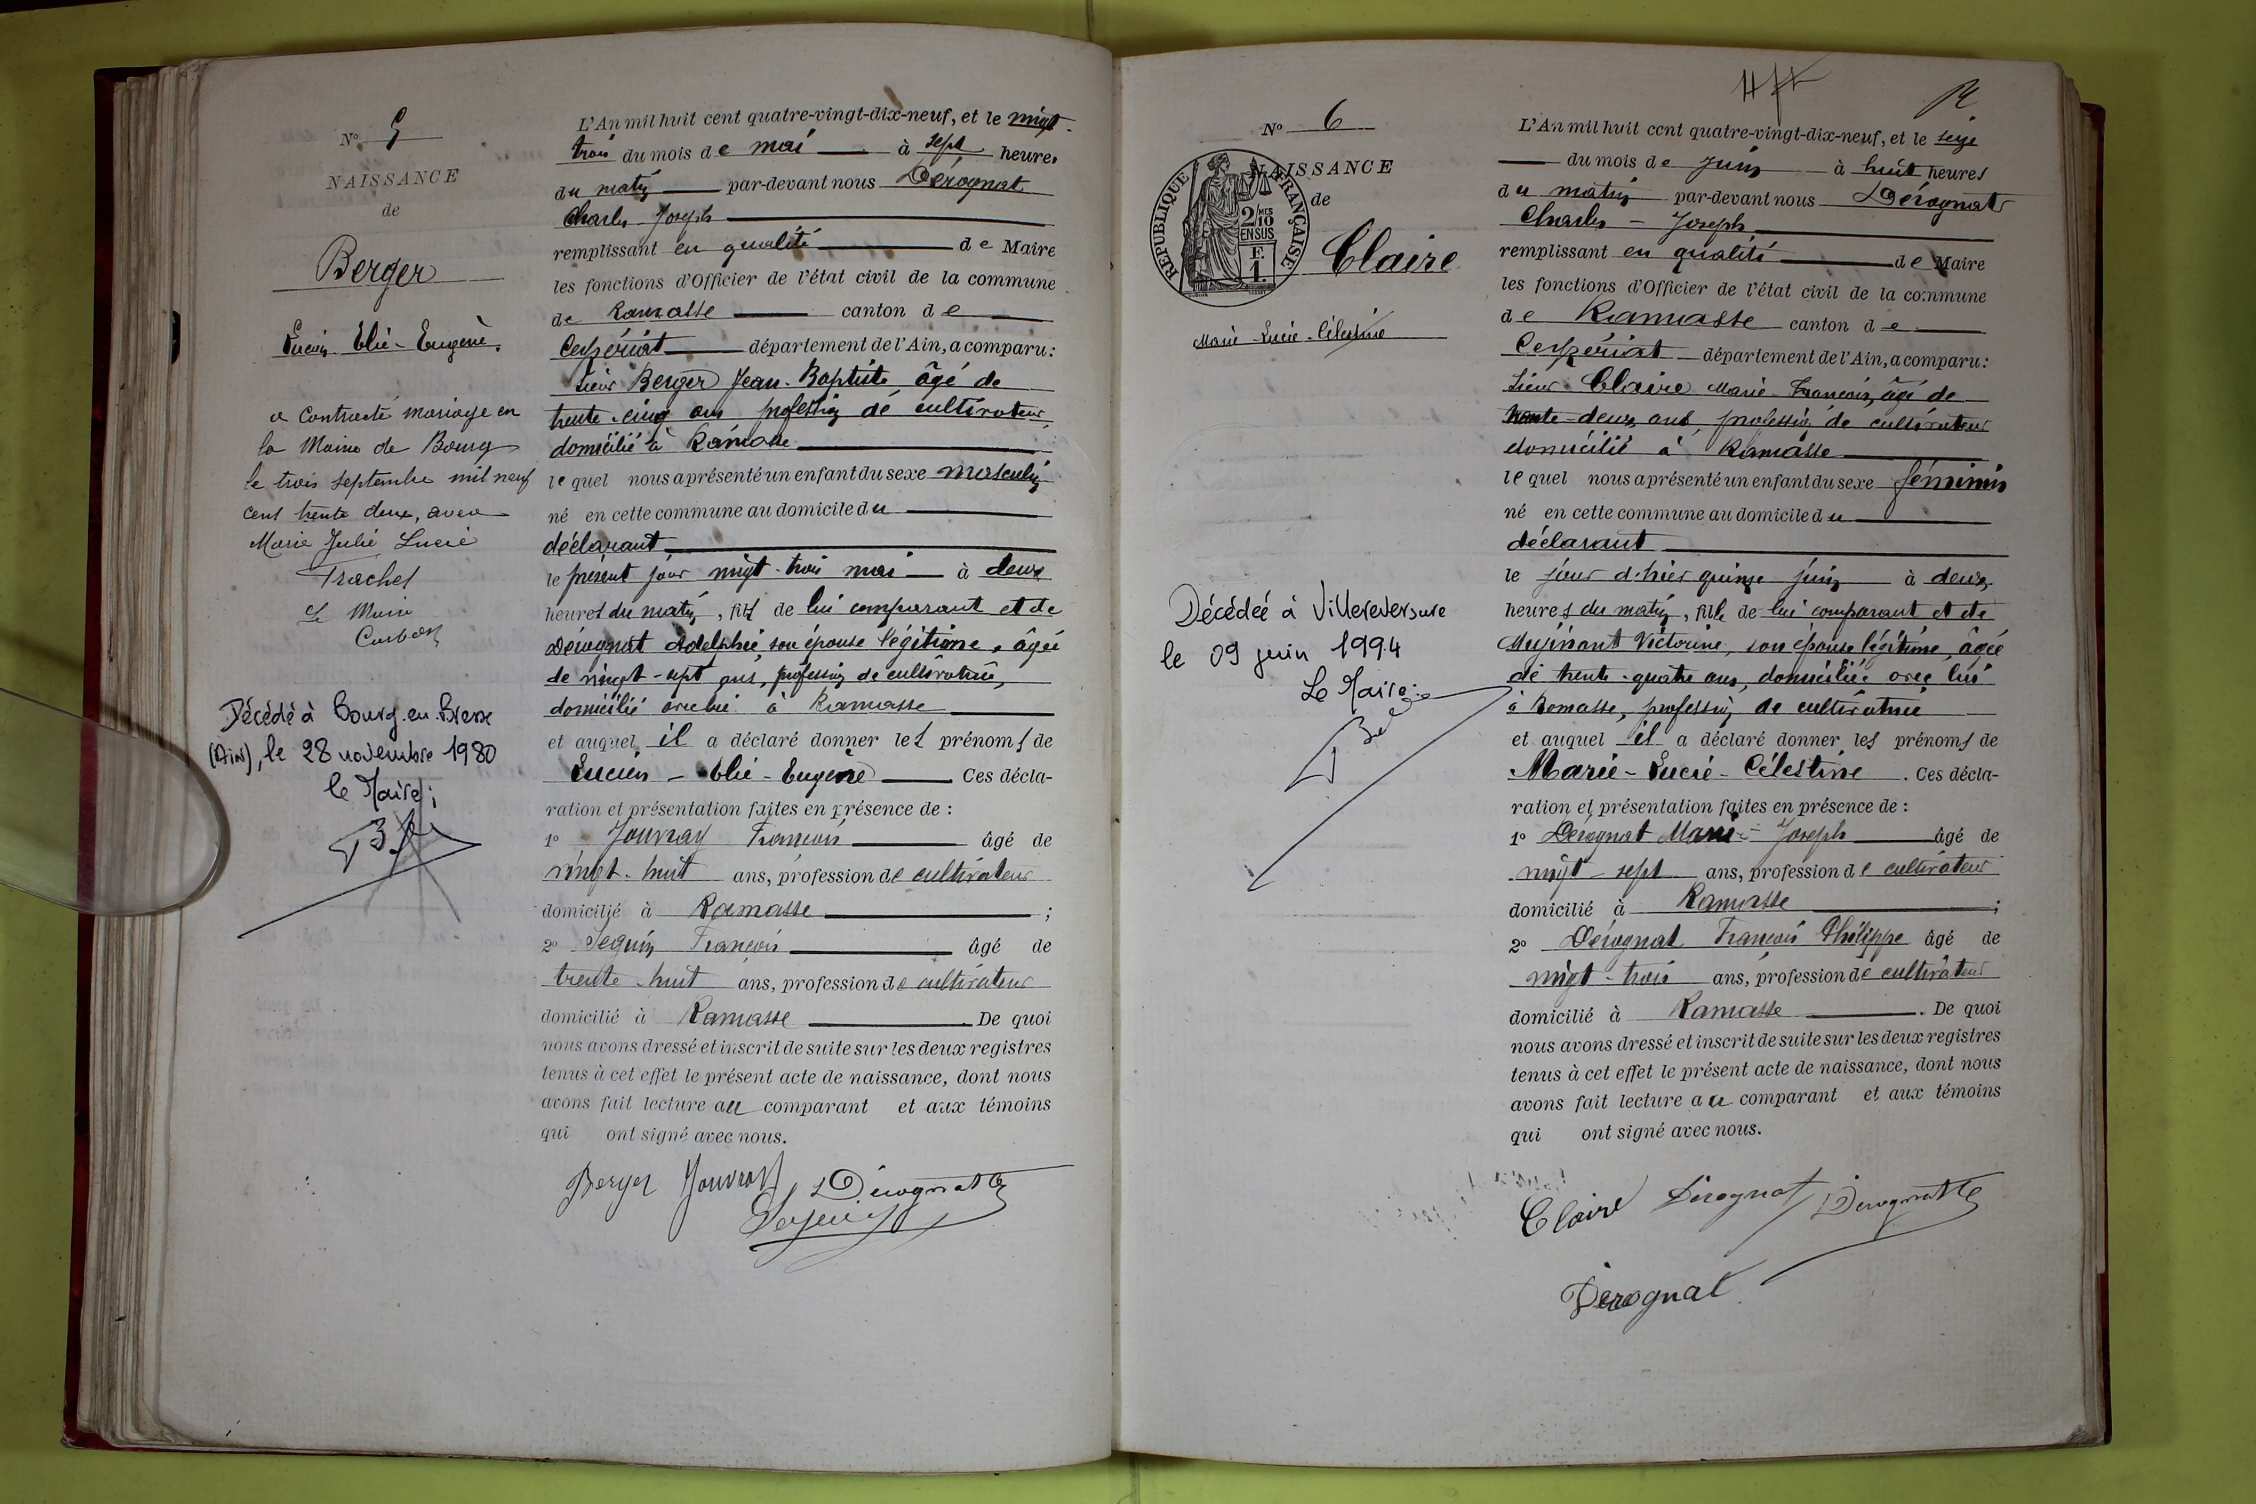 N° 5
NAISSANCE
de
Berger
Lucien Elie-Eugène.
a contracté mariage en
la Mairie de Bourg
le trois septembre mil neuf
cent trente deux, avec
Marie Julie Lucie
Trachet
Le Maire
Décédé à Bourg-en-Bresse
(Ain), le 28 novembre 1980
le Maire;
L'An mil huit cent quatre-vingt-dix-neuf, et le vingt
trois du mois de mai à sept heures
du matin par-devant nous Dérognat
Charles Joseph
remplissant en qualité de Maire
les fonctions d'Officier de l'état civil de la commune
de Ramasse canton de
Ceyzériat département de l'Ain, a comparu:
sieur Berger Jean-Baptiste âgé de
trente-cinq ans profession de cultivateur,
domicilié à Ramasse
lequel nous a présenté un enfant du sexe masculin
né en cette commune au domicile du
déclarant
le présent jour vingt-trois mai à deux
heures du matin, fils de lui comparant et de
Dérognat Adelphie, son épouse légitime, âgée
de vingt-sept ans, profession de cultivatrice,
domicilié avec lui à Ramasse
et auquel il a déclaré donner les prénoms de
Lucien-Elie-Eugène Ces décla-
ration et présentation faites en présence de :
1° Jouvray François âgé de
vingt-huit ans, profession de cultivateur
domicilié à Ramasse ;
2° Seguin François âgé de
trente-huit ans, profession de cultivateur
domicilié à Ramasse De quoi
nous avons dressé et inscrit de suite sur les deux registres
tenus à cet effet le présent acte de naissance, dont nous
avons fait lecture au comparant et aux témoins
qui ont signé avec nous.
Berger Jouvray Dérognat
Seguin
N° 6
NAISSANCE
de
REPUBLIQUE FRANÇAISE
2/10 MES
EN SUS
F.
1
Claire
Marie-Lucie-Célestine
Décédée à Villereversure
le 09 juin 1994
Le Maire:
L'An mil huit cent quatre-vingt-dix-neuf, et le seize
du mois de juin à huit heures
du matin par-devant nous Dérognat
Charles-Joseph
remplissant en qualité de Maire
les fonctions d'Officier de l'état civil de la commune
de Ramasse canton de
Ceyzériat département de l'Ain, a comparu:
sieur Claire Marie-François, âgé de
trente-deux ans, profession de cultivateur
domicilié à Ramasse
lequel nous a présenté un enfant du sexe féminin
né en cette commune au domicile du
déclarant
le jour d'hier quinze juin à deux
heures du matin, fille de lui comparant et de
Victorine, son épouse légitime, âgée
de trente-quatre ans, domiciliée avec lui
à Ramasse, profession de cultivatrice
et auquel il a déclaré donner les prénoms de
Marie-Lucie-Célestine. Ces décla-
ration et présentation faites en présence de :
1° Dérognat Marie-Joseph âgé de
vingt-sept ans, profession de cultivateur
domicilié à Ramasse ;
2° Dérognat François Philippe âgé de
vingt-trois ans, profession de cultivateur
domicilié à Ramasse. De quoi
nous avons dressé et inscrit de suite sur les deux registres
tenus à cet effet le présent acte de naissance, dont nous
avons fait lecture au comparant et aux témoins
qui ont signé avec nous.
Claire Dérognat Dérognat
Dérognat